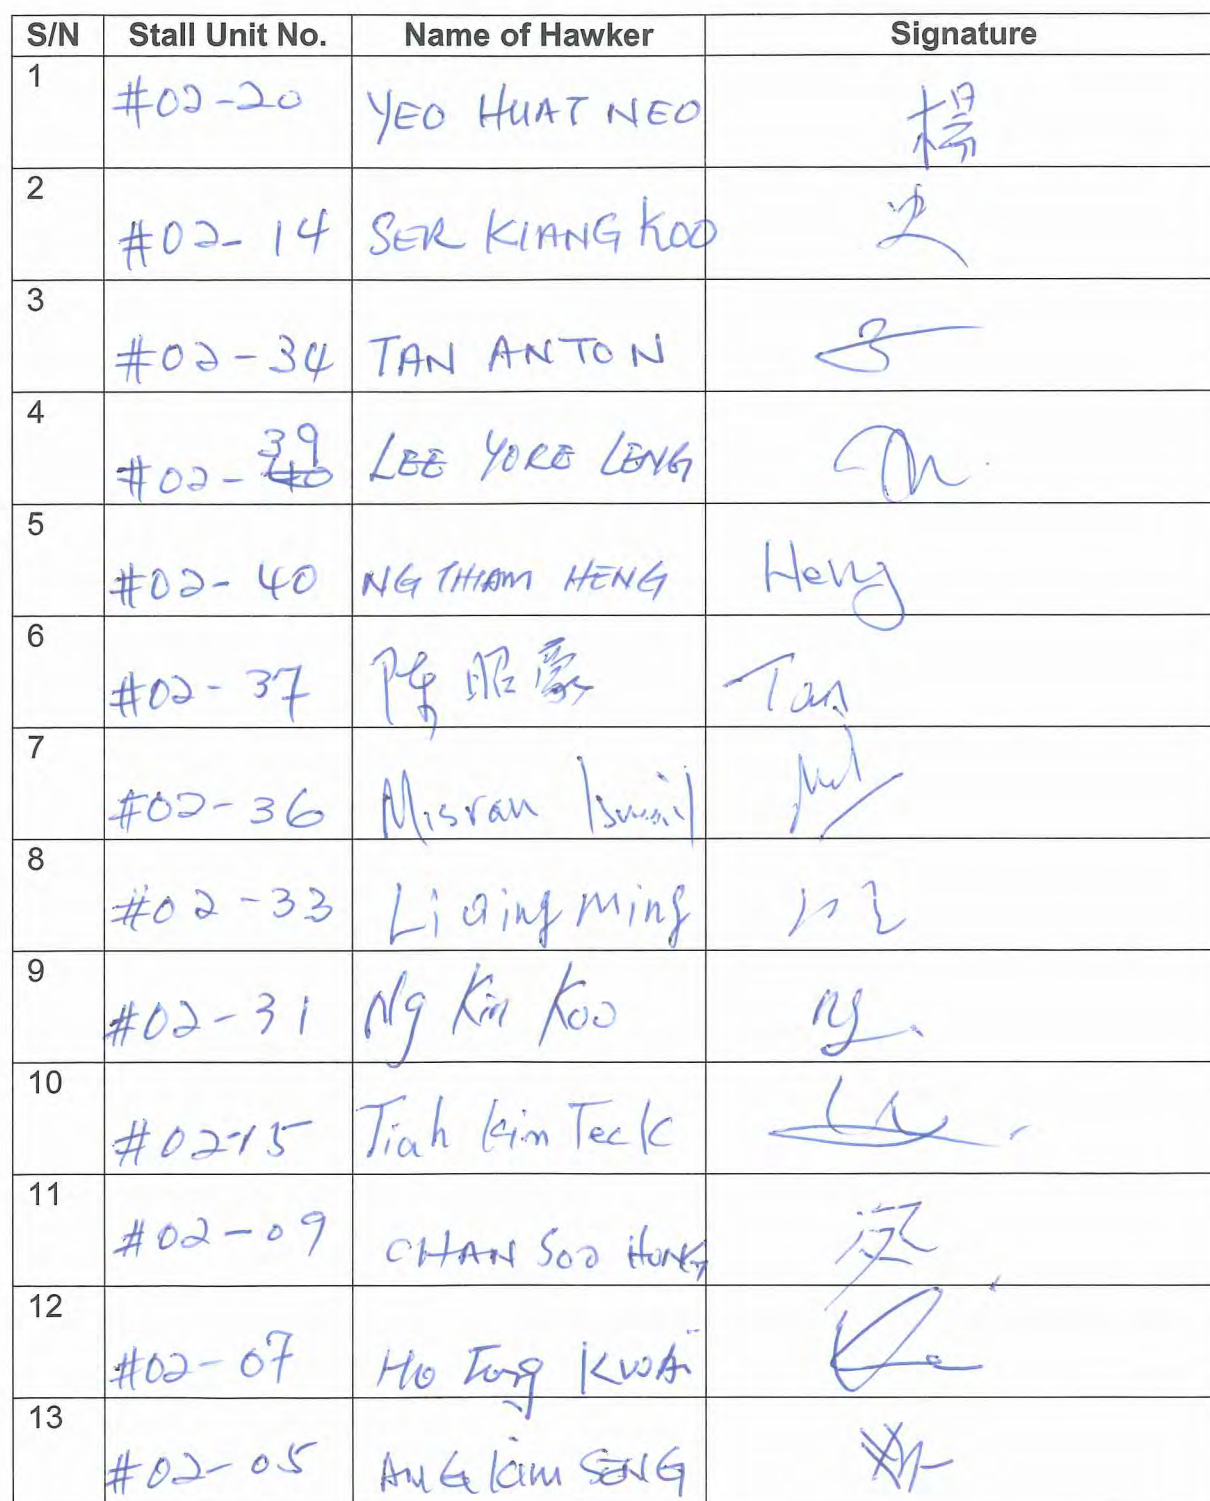 S/N Stall Unit No. Name of Hawker Signature
1 #02-20 YEO HUAT NEO 楊
2 #02-14 SER KIANG KOO
3 #02-34 TAN ANTON
4 #02-39 LEE YOKE LENG
5 #02-40 NG THIAM HENG Heng
6 #02-37 陈昭豪 Tan
7 #02-36 Misran Ismail
8 #02-33 Li Qing Ming
9 #02-31 Ng Kin Koo Ng
10 #02-15 Tiah Kim Teck
11 #02-09 CHAN SOO HONG
12 #02-07 HO Tong KWAI
13 #02-05 ANG KIM SENG